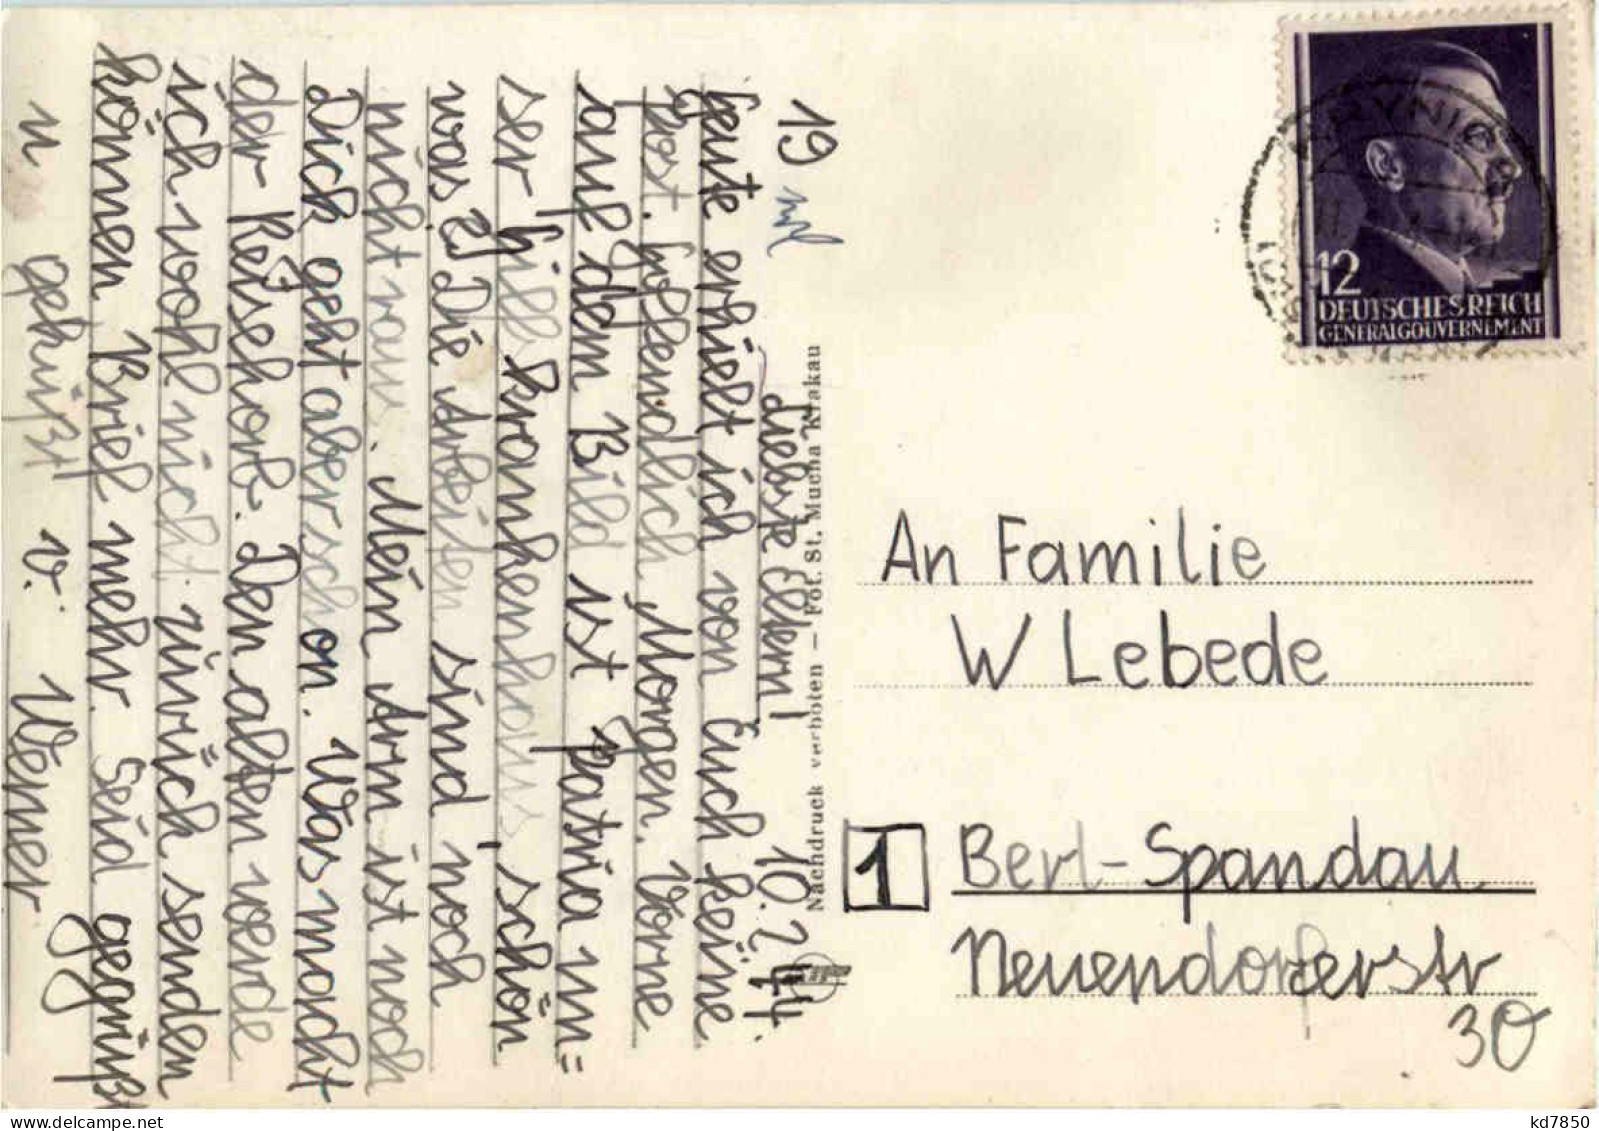 19
10.2.44.
Liebste Eltern!
heute erhielt ich von Euch keine
Post. Hofendlich Morgen. Vorne
auf dem Bild ist Patria un=
ser Hilfskrankenhaus, schön
was? Die Arbeiten sind noch
nicht raus. Mein Arm ist noch
Dich geht aber schon. Was macht
der Reisekorb. Den alten werde
ich wohl nicht zurück senden
können Brief mehr. Seid gegrüßt
u geküßt v: Werner
Nachdruck verboten — Fot. St. Mucha Krakau
KRYNICA
12
DEUTSCHES REICH
GENERALGOUVERNEMENT
An Familie
W Lebede
1 Berl-Spandau
Neuendorferstr
30
kd7850